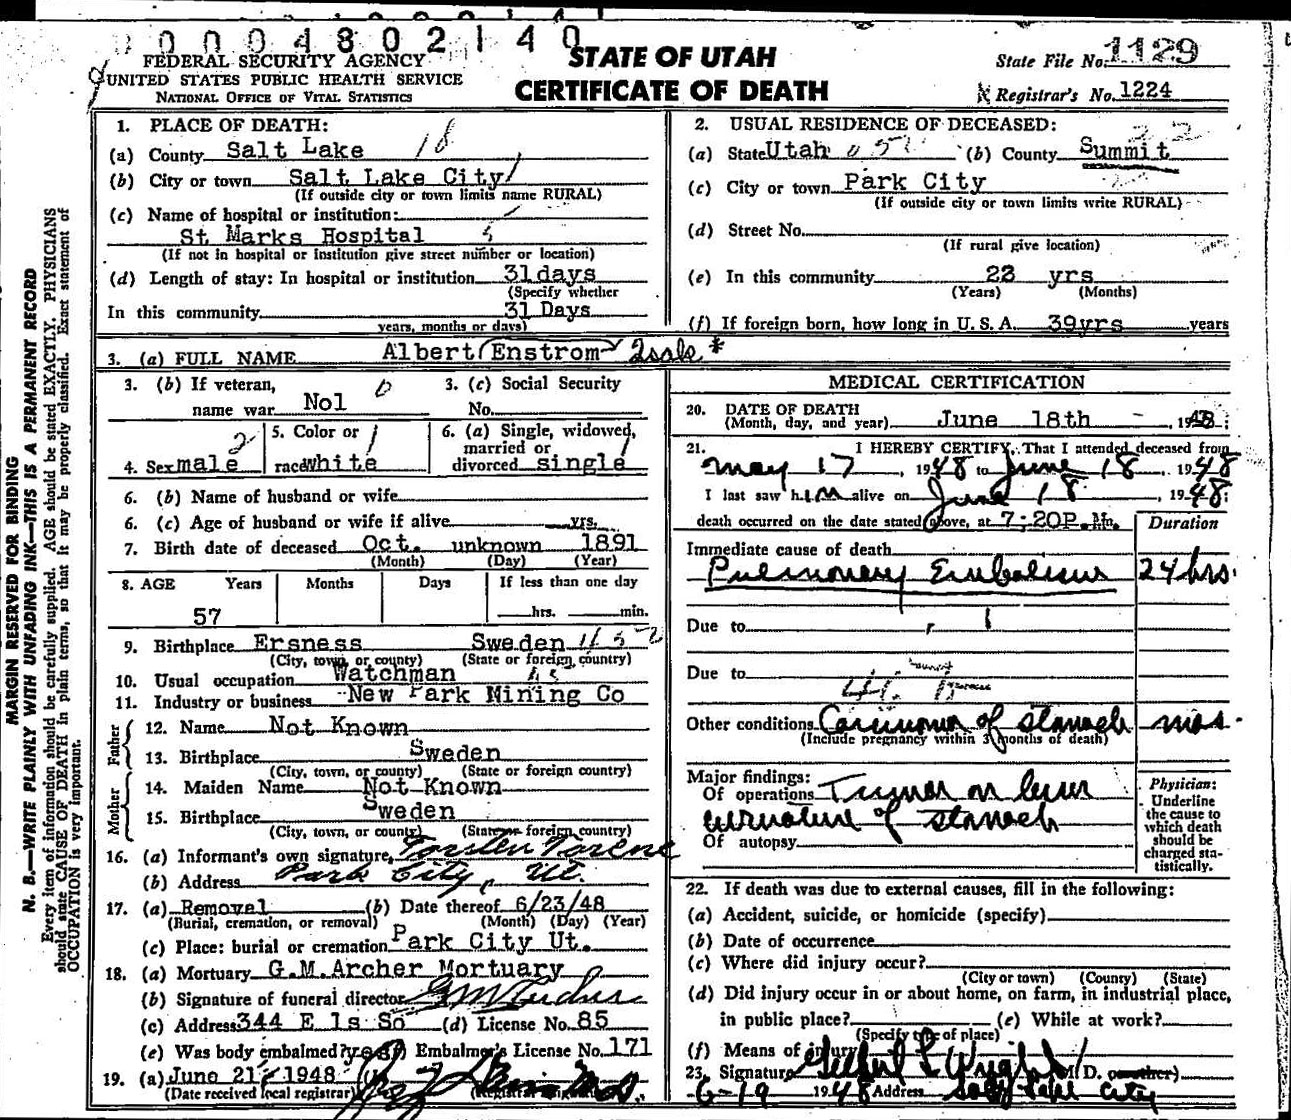 0 0 0 4 8 0 2 1 4 0
FEDERAL SECURITY AGENCY
UNITED STATES PUBLIC HEALTH SERVICE
NATIONAL OFFICE OF VITAL STATISTICS
STATE OF UTAH
CERTIFICATE OF DEATH
State File No. 1129
Registrar's No. 1224
MARGIN RESERVED FOR BINDING
N. B.—WRITE PLAINLY WITH UNFADING INK—THIS IS A PERMANENT RECORD
Every item of information should be carefully supplied. AGE should be stated EXACTLY. PHYSICIANS
should state CAUSE OF DEATH in plain terms, so that it may be properly classified. Exact statement of
OCCUPATION is very important.
1. PLACE OF DEATH:
(a) County Salt Lake 18
(b) City or town Salt Lake City
(If outside city or town limits name RURAL)
(c) Name of hospital or institution:
St Marks Hospital
(If not in hospital or institution give street number or location)
(d) Length of stay: In hospital or institution 31days
(Specify whether
In this community 31 Days
years, months or days)
2. USUAL RESIDENCE OF DECEASED:
(a) State Utah (b) County Summit
(c) City or town Park City
(If outside city or town limits write RURAL)
(d) Street No.
(If rural give location)
(e) In this community 23 yrs
(Years) (Months)
(f) If foreign born, how long in U. S. A. 39yrs years
3. (a) FULL NAME Albert Enstrom *
3. (b) If veteran,
name war Nol
3. (c) Social Security
No.
4. Sex male
5. Color or
race white
6. (a) Single, widowed,
married or
divorced single
6. (b) Name of husband or wife
6. (c) Age of husband or wife if alive yrs.
7. Birth date of deceased Oct. unknown 1891
(Month) (Day) (Year)
8. AGE Years Months Days If less than one day
57 hrs. min.
9. Birthplace Ersness Sweden
(City, town, or county) (State or foreign country)
10. Usual occupation Watchman
11. Industry or business New Park Mining Co
Father
12. Name Not Known
13. Birthplace Sweden
(City, town, or county) (State or foreign country)
Mother
14. Maiden Name Not Known
15. Birthplace Sweden
(City, town, or county) (State or foreign country)
16. (a) Informant's own signature Torsten Torene
(b) Address Park City, Ut.
17. (a) Removal (b) Date thereof 6/23/48
(Burial, cremation, or removal) (Month) (Day) (Year)
(c) Place: burial or cremation Park City Ut.
18. (a) Mortuary G.M.Archer Mortuary
(b) Signature of funeral director
(c) Address 344 E ls So (d) License No. 85
(e) Was body embalmed? yes Embalmer's License No. 171
19. (a) June 21, 1948
(Date received local registrar)
MEDICAL CERTIFICATION
20. DATE OF DEATH
(Month, day, and year) June 18th , 1948;
21. I HEREBY CERTIFY, That I attended deceased from
May 17, 1948 to June 18, 1948
I last saw him alive on June 18, 1948;
death occurred on the date stated above, at 7:20P.m.
Duration
Immediate cause of death
Pulmonary Embolism 24 hrs.
Due to
Due to
Other conditions Carcinoma of stomach mos.
(Include pregnancy within 3 months of death)
Major findings:
Of operations Tumor on lesser
curvature of stomach
Of autopsy
Physician:
Underline
the cause to
which death
should be
charged sta-
tistically.
22. If death was due to external causes, fill in the following:
(a) Accident, suicide, or homicide (specify)
(b) Date of occurrence
(c) Where did injury occur?
(City or town) (County) (State)
(d) Did injury occur in or about home, on farm, in industrial place,
in public place? (e) While at work?
(Specify type of place)
(f) Means of injury
23. Signature M.D. or other)
6-19 1948 Address Salt Lake City